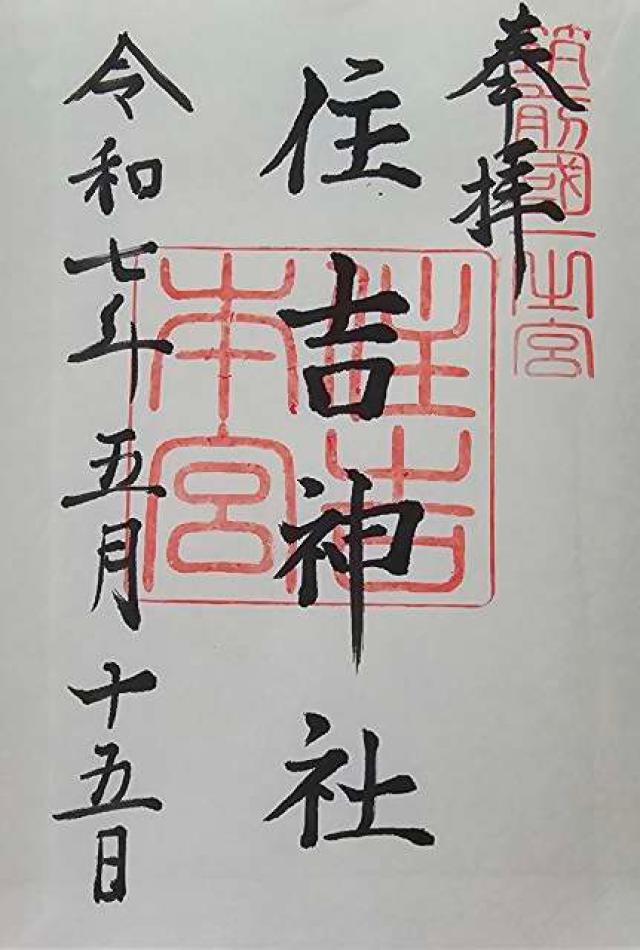 奉拝
筑前國一之宮
住吉神社
住吉本宮
令和七年五月十五日